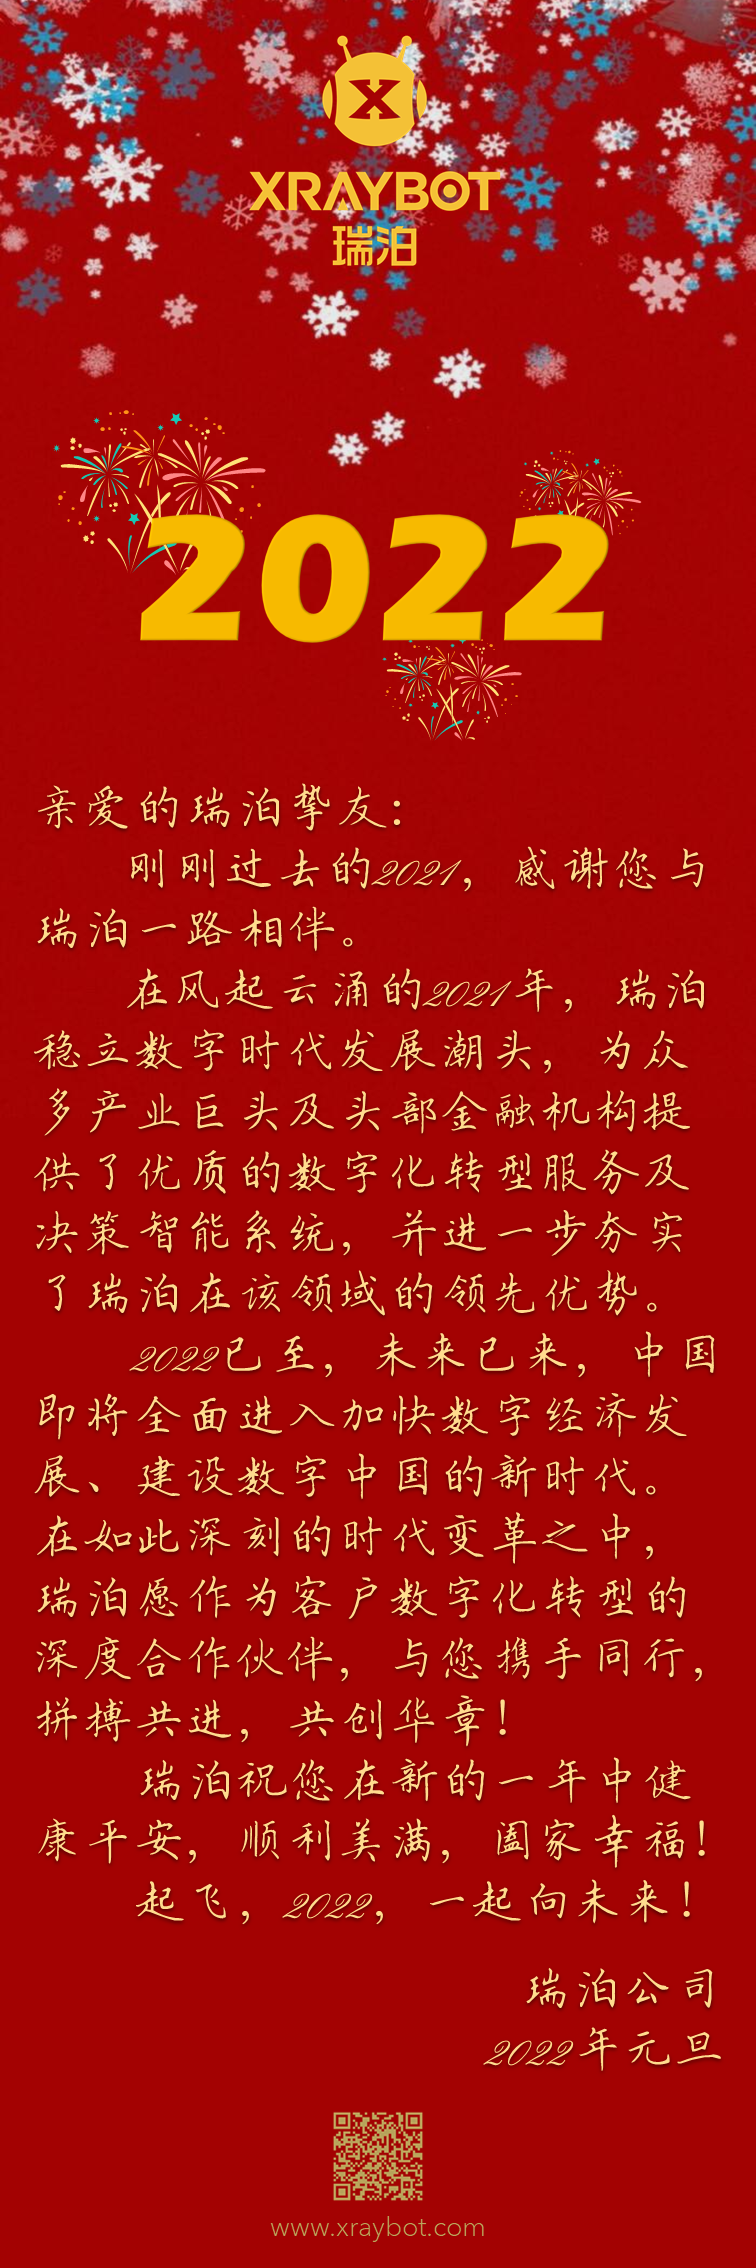 X
XRAYBOT
瑞泊
2022
亲爱的瑞泊挚友：
刚刚过去的2021，感谢您与
瑞泊一路相伴。
在风起云涌的2021年，瑞泊
稳立数字时代发展潮头，为众
多产业巨头及头部金融机构提
供了优质的数字化转型服务及
决策智能系统，并进一步夯实
了瑞泊在该领域的领先优势。
2022已至，未来已来，中国
即将全面进入加快数字经济发
展、建设数字中国的新时代。
在如此深刻的时代变革之中，
瑞泊愿作为客户数字化转型的
深度合作伙伴，与您携手同行，
拼搏共进，共创华章！
瑞泊祝您在新的一年中健
康平安，顺利美满，阖家幸福！
起飞，2022，一起向未来！
瑞泊公司
2022年元旦
www.xraybot.com